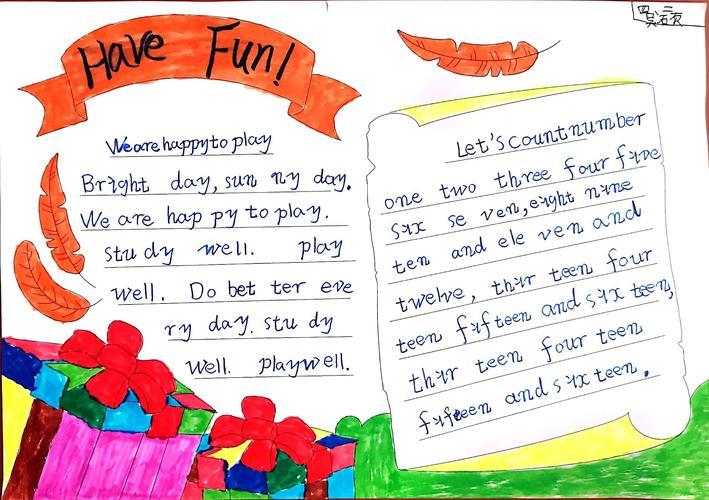 Have Fun!
We are happy to play
Bright day, sun ny day.
We are hap py to play.
stu dy well. play
well. Do bet ter eve
ry day. stu dy
well. playwell.
Let's count number
one two three four five
six se ven, eight nine
ten and ele ven and
twelve, thir teen four
teen fifteen and six teen,
thir teen four teen
fifteen and six teen.